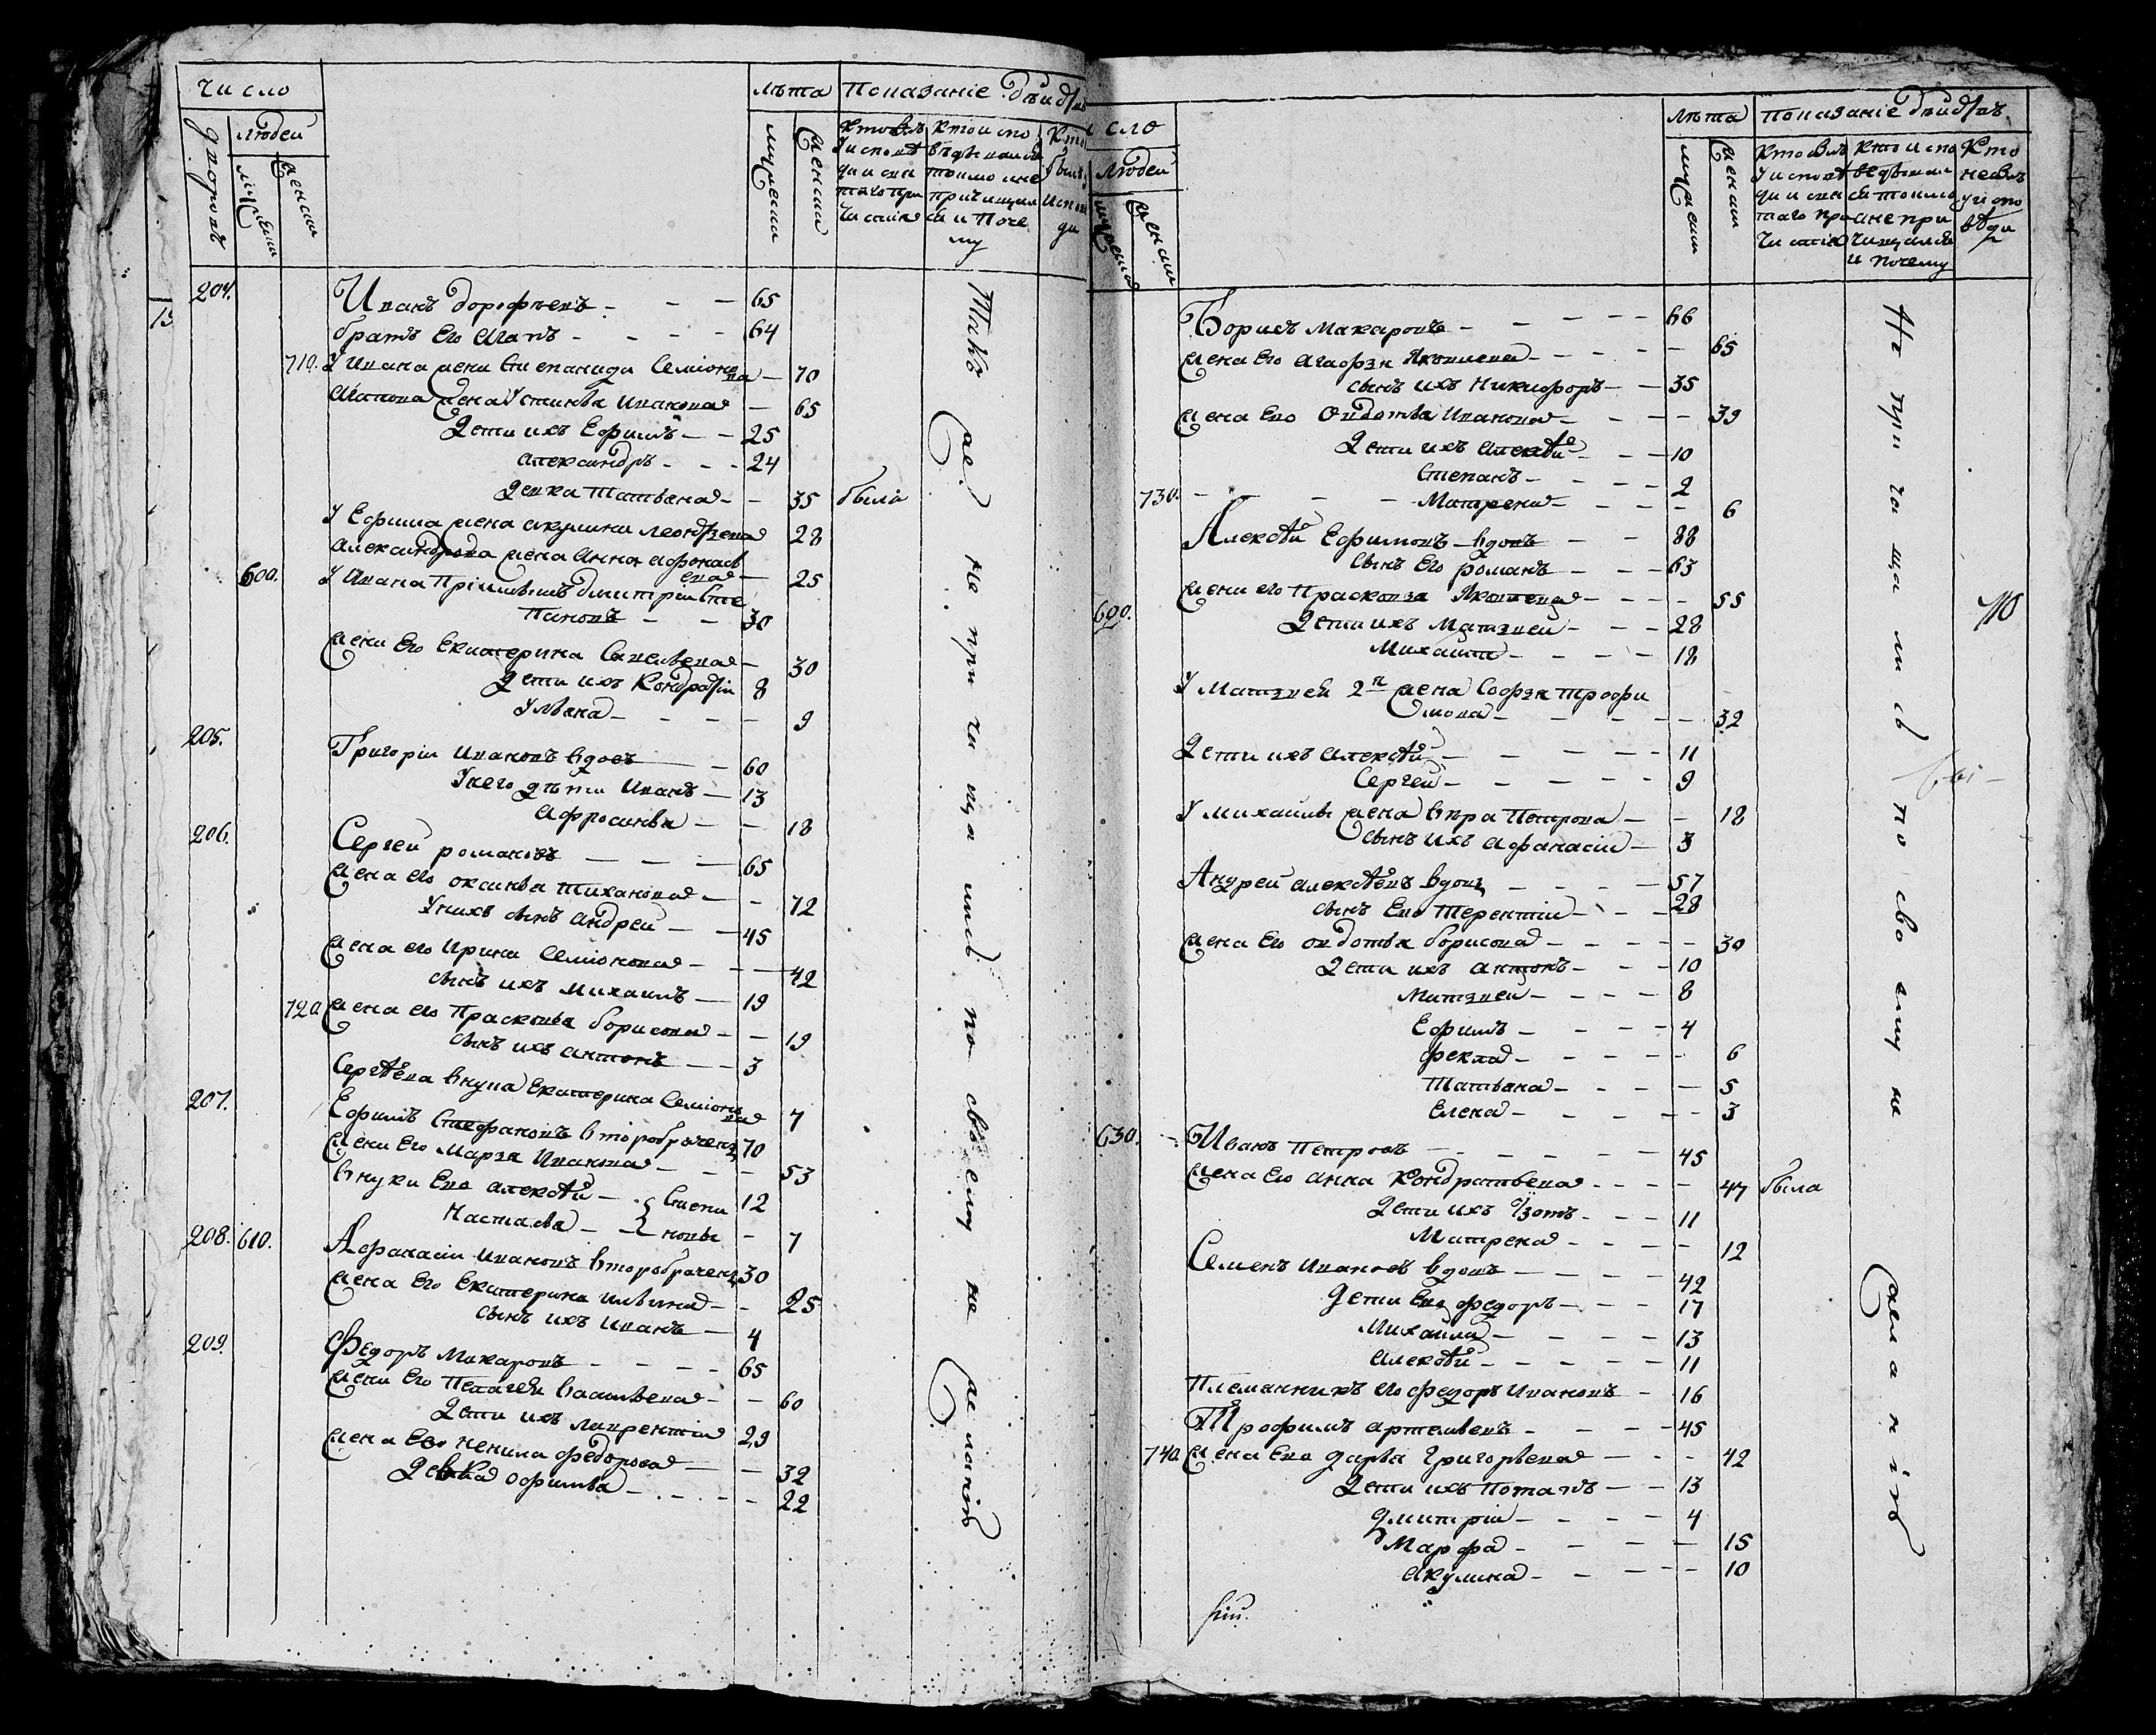 Число
Лѣта Показанiе дѣйств
дворовъ людей
мужеска женска
мужеска женска
Кто былъ у исповѣди и святаго причастiя
Кто исповѣдывался токмо и не причищался и почему
Кто
204. Иванъ Дорофѣевъ - - - 65
братъ Его Агапъ - - - 64
710. У Ивана жена Степанида Семiонова - 70
Агапова жена Устинья Иванова - 65
Дети ихъ Ефимъ - - 25
Александръ - - - 24
Девка Татьяна - - 35 была
У Ефима жена Акулина Леонтьева 28
Александрова жена Анна Афонасьева - 25
600. У Ивана Прiимышъ Дмитрiи Степановъ - - 30
жена Его Екатерина Савельева - 30
Дети ихъ Кондратiи 8
Ульяна - - - - 9
205. Григорiи Ивановъ вдовъ - 60
У него дѣти Иванъ - 13
Афросинья - - 18
206. Сергеи романовъ - - - 65
жена его Оксинья Тиханова - - 72
У нихъ сынъ Андреи - - 45
жена его Ирина Семiонова - - - 42
сынъ ихъ Михаилъ - 19
720. жена его Прасковья борисова - - 19
сынъ ихъ Антонъ - - 3
Сергѣева внука Екатерина Семiонова 7
207. Ефимъ Стефановъ второбрачен 70
жена Его Марья Иванова - - - 53
внуки Его Алексѣй - 12
Настасья - - - 7
Степановы
208. 610. Афанасiи Ивановъ второбрачен 30
жена Его Екатерина Ильина - - 25
сынъ ихъ Иванъ - 4
209. Федоръ Макаровъ - - - - 65
жена Его Пелагея Васильева - - 60
Дети ихъ Лаврентiи 29
жена Его Ненила Федорова - - 32
Девка Офимья - - - - 22
Тако же не причищались по своему не желанiю
сло
Лѣта Показанiе дѣйств
Людей
мужеска женска
мужеска женска
Кто былъ у исповѣди и святаго причастiя
Кто исповѣдывался токмо а не причищался и почему
Кто не былъ у исповѣди
Борисъ Макаровъ - - - - - 66
жена Его Агафья Яковлева - - - - - 65
сынъ ихъ Никифоръ - - 35
жена Его Овдотья Иванова - - - - 39
Дети ихъ Алексѣй - - - 10
Степанъ - - - - 2
730. - - - - Матрена - - - - 6
Алексѣй Ефимовъ вдовъ - - 88
сынъ Его романъ - - - 63
жена его Прасковья Яковлева - - - - 55
620. Дети ихъ Матвеи - - - 28
Михаила - - - - 18
У Матвея 2я жена Софья Трофимова - - - - - 32
Дети ихъ Алексѣй - - - - 11
Сергеи - - - - - 9
У Михаилы жена Вера Петрова - - 18
сынъ ихъ Афанасiи - 3
Андреи Алексѣевъ вдовъ - - - - 57
сынъ Его Терентiи - - - 28
жена Его Овдотья борисова - - - - - 30
Дети ихъ Антонъ - - - 10
Матвеи - - - - 8
Ефимъ - - - - 4
фекла - - - - - 6
Татьяна - - - - 5
Елена - - - - - 3
630. Иванъ Петровъ - - - - - - 45
жена Его Анна Кондратьева - - - - 47 была
Дети ихъ Изотъ - - - 11
Матрена - - - - 12
Семенъ Ивановъ вдовъ - - - - 42
Дети Его федоръ - - - 17
Михаила - - - - 13
Алексѣй - - - - - 11
Племянникъ его федоръ Ивановъ - 16
Трофимъ Артемьевъ - - - - 45
740. жена Его Дарья Григорьева - - - - 42
Дети ихъ Потапъ - - 13
Дмитрiи - - - - 4
Марфа - - - - 15
Акулина - - - - - 10
Не причищались по своему не желанiю